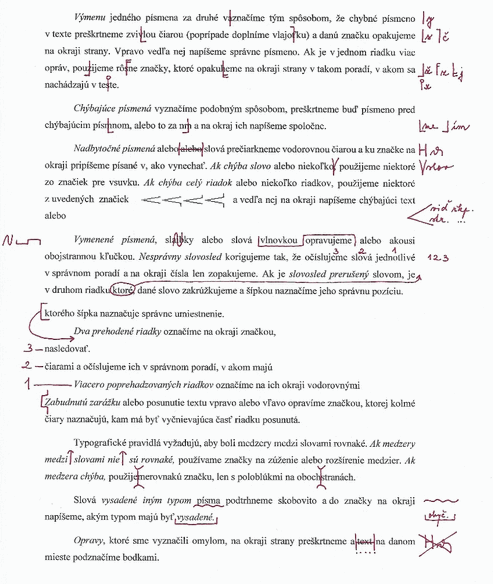 Výmenu jedného písmena za druhé vaznačíme tým spôsobom, že chybné písmeno
v texte preškrtneme zvivlou čiarou (poprípade doplníme vlajorku) a danú značku opakujeme
na okraji strany. Vpravo vedľa nej napíšeme správne písmeno. Ak je v jednom riadku viac
opráv, použijeme rôsne značky, ktoré opakujeme na okraji strany v takom poradí, v akom sa
nachádzajú v teste.
Chýbajúce písmená vyznačíme podobným spôsobom, preškrtneme buď písmeno pred
chýbajúcim písmnom, alebo to za nm a na okraj ich napíšeme spoločne.
Nadbytočné písmená alebo alebo slová prečiarkneme vodorovnou čiarou a ku značke na
okraji pripíšeme písané v, ako vynechať. Ak chýba slovo alebo niekoľko použijeme niektoré
zo značiek pre vsuvku. Ak chýba celý riadok alebo niekoľko riadkov, použijeme niektoré
z uvedených značiek a vedľa nej na okraji napíšeme chýbajúci text
alebo
Vymenené písmená, slabky alebo slová vlnovkou opravujeme alebo akousi
obojstrannou kľučkou. Nesprávny slovosled korigujeme tak, že očíslujeme slová jednotlivé 123
3 2 1
v správnom poradí a na okraji čísla len zopakujeme. Ak je slovosled prerušený slovom, je
v druhom riadku ktoré, dané slovo zakrúžkujeme a šípkou naznačíme jeho správnu pozíciu.
ktorého šípka naznačuje správne umiestnenie.
Dva prehodené riadky označíme na okraji značkou,
3 nasledovať.
2 čiarami a očíslujeme ich v správnom poradí, v akom majú
1 Viacero poprehadzovaných riadkov označíme na ich okraji vodorovnými
Zabudnutú zarážku alebo posunutie textu vpravo alebo vľavo opravíme značkou, ktorej kolmé
čiary naznačujú, kam má byť vyčnievajúca časť riadku posunutá.
Typografické pravidlá vyžadujú, aby boli medzery medzi slovami rovnaké. Ak medzery
medzi slovami nie sú rovnaké, používame značky na zúženie alebo rozšírenie medzier. Ak
medzera chýba, použijemerovnakú značku, len s poloblúkmi na obochstranách.
Slová vysadené iným typom písma podtrhneme skobovito a do značky na okraji
napíšeme, akým typom majú byť vysadené. obyč.
Opravy, ktoré sme vyznačili omylom, na okraji strany preškrtneme a text na danom
mieste podznačíme bodkami.